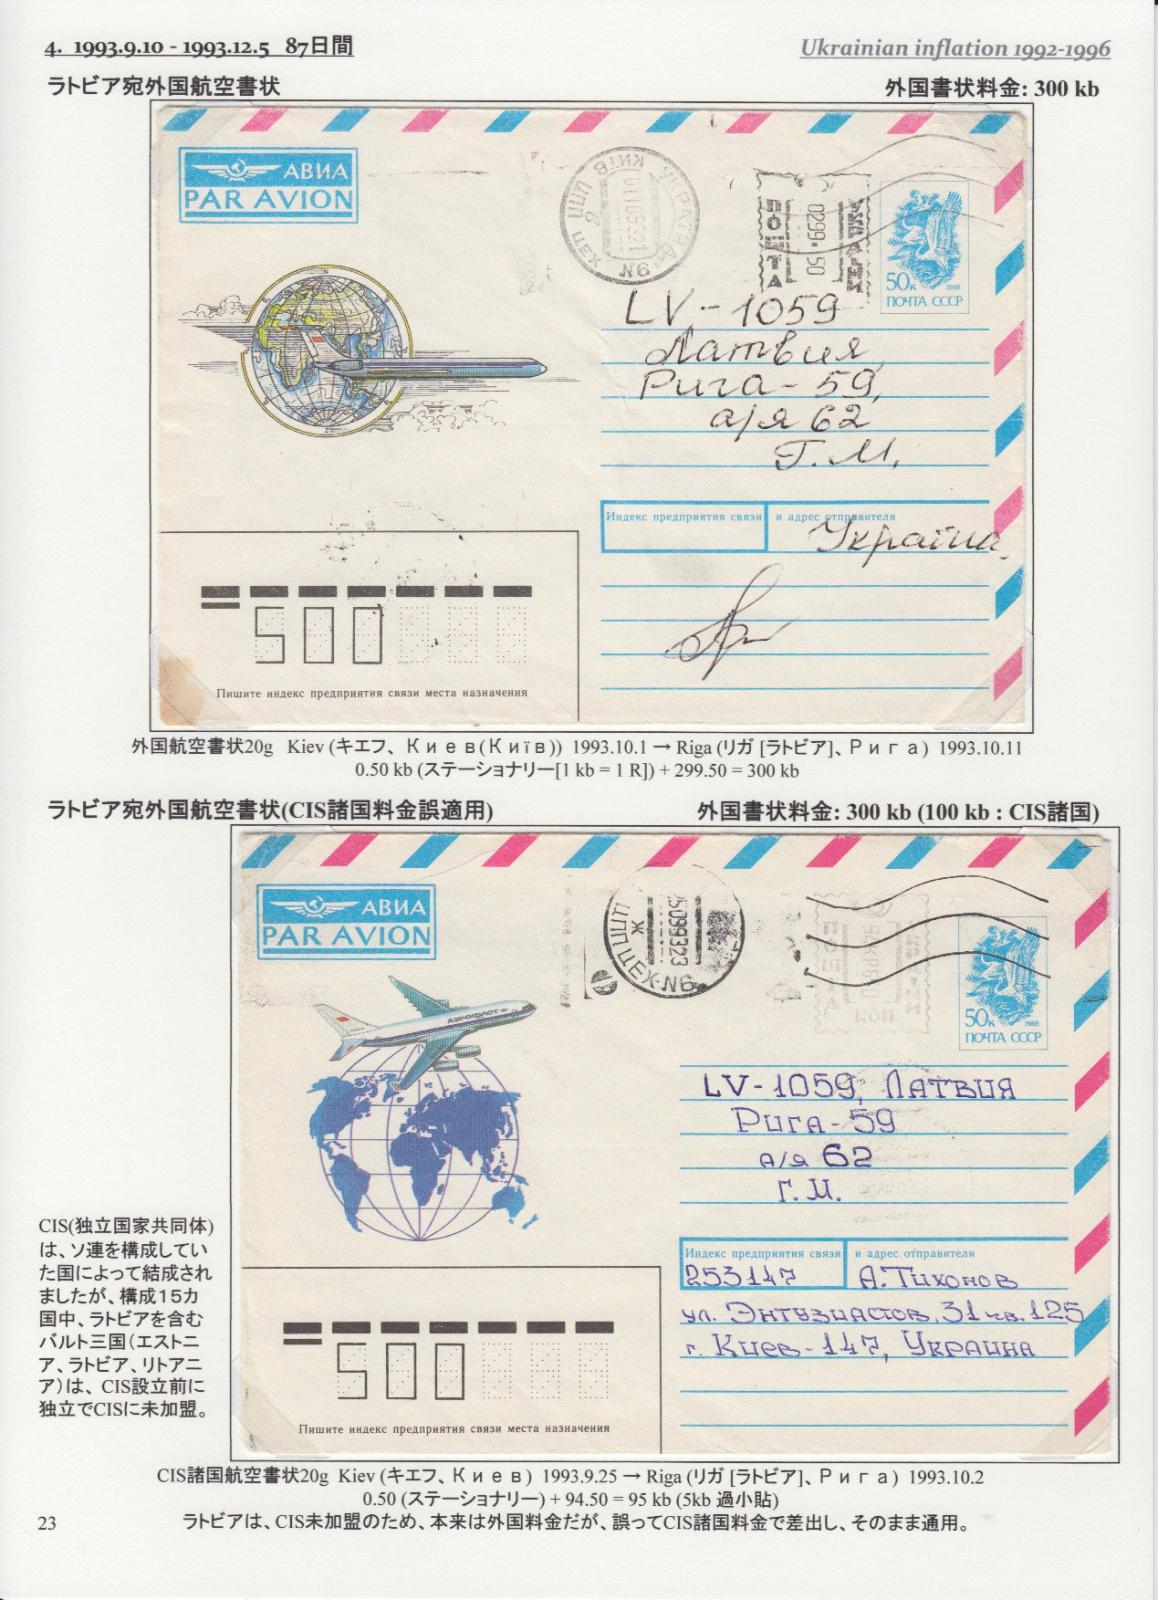 4. 1993.9.10 - 1993.12.5 87日間
Ukrainian inflation 1992-1996
ラトビア宛外国航空書状
外国書状料金: 300 kb
АВИА
PAR AVION
УКРАЇНА
КИЇВ ЦПП
N6
ПОШТА
0299.50
50к 1988
ПОЧТА СССР
LV-1059
Латвия,
Рига-59,
а/я 62
Г.М.
Индекс предприятия связи и адрес отправителя
Україна.
500
Пишите индекс предприятия связи места назначения
外国航空書状20g Kiev (キエフ、Киев(Київ)) 1993.10.1 → Riga (リガ [ラトビア]、Рига) 1993.10.11
0.50 kb (ステーショナリー[1 kb = 1 R]) + 299.50 = 300 kb
ラトビア宛外国航空書状(CIS諸国料金誤適用)
外国書状料金: 300 kb (100 kb : CIS諸国)
АВИА
PAR AVION
АЭРОФЛОТ
50к 1988
ПОЧТА СССР
LV-1059, Латвия
Рига-59
а/я 62
Г.М.
Индекс предприятия связи и адрес отправителя
253147 А.Тихонов
ул. Энтузиастов, 31 кв. 125
г. Киев-147, Украина
500
Пишите индекс предприятия связи места назначения
CIS(独立国家共同体)
は、ソ連を構成してい
た国によって結成され
ましたが、構成15カ
国中、ラトビアを含む
バルト三国(エストニ
ア、ラトビア、リトアニ
ア)は、CIS設立前に
独立でCISに未加盟。
CIS諸国航空書状20g Kiev (キエフ、Киев) 1993.9.25 → Riga (リガ [ラトビア]、Рига) 1993.10.2
0.50 (ステーショナリー) + 94.50 = 95 kb (5kb 過小貼)
23
ラトビアは、CIS未加盟のため、本来は外国料金だが、誤ってCIS諸国料金で差出し、そのまま通用。